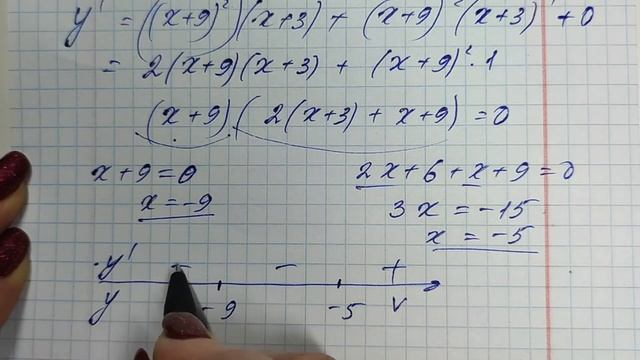 y' = ((x+9)²)'(x+3) + (x+9)²(x+3)' + 0
= 2(x+9)(x+3) + (x+9)²·1
(x+9)(2(x+3) + x+9) = 0
x+9=0 2x+6+x+9=0
x=-9 3x = -15
x = -5
y' - +
y -9 -5 v